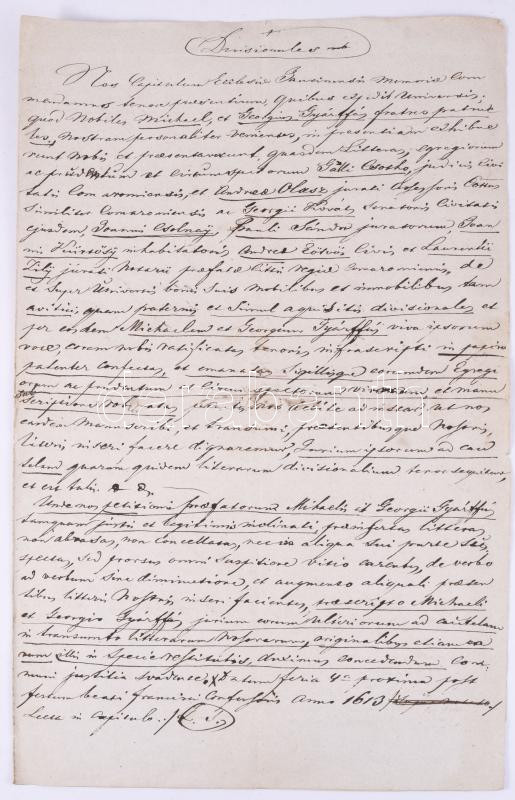 Divisionales
Nos Capitulum Ecclesiæ Jauriensis Memoriæ Com
mendamus tenore præsentium, quibus expedit Universis;
quod Nobiles Michael, et Georgius Gyárffás fratres patrue
les, nostram personaliter venientes, in præsentiam exhibue
runt nobis et præsentaverunt quasdam Litteras, egregiorum
ac prudentum et Circumspectorum Pauli judicis Civi
tatis Comaromiensis, et Andreæ Olasz jurati Assessoris
similiter Comaromiensis ac Georgii Senatoris Civitatis
ejusdem, Joannis Csolnay, Pauli Sándor juratorum Joan
nis inhabitatoris, Andreæ Eötvös Civis et Laurentii
jurati Notarii præfatæ Comaromiensis, de
et super Universis bonis suis mobilibus et immobilibus tam
avitiis quam paternis et simul aquisitis divisionales et
per eosdem Michaelem et Georgium Gyárffás viva ipsorum
voce, coram nobis ratificatas tenoris infrascripti in papiro
patenter confectas, et emanatas Sigillisque eorumdem Egregi
orum ac prudentum ac Circumspectorum et manu
scriptione roboratas, nos ut nos
easdem Manuscribi, et transumi, præsentibusque Nostris,
litteris inseri facere dignaremur, Jurium ipsorum ad cau
telam quarum quidem literarum divisionalium tenor sequitur,
et est talis.
Unde nos petitioni præfatorum Michaelis et Georgii Gyárffás
tamquam justis et legitimis inclinati, præinsertas litteras,
non abrasas, non Concellatas, nec in aliqua sui parte Sus
pectas, sed prorsus omni suspitione vitio carentes, de verbo
ad verbum sine diminutione, et augmento aliquali præsen
tibus litteris Nostris inseri facientes, præscripto Michaeli
et Georgio Gyárffás jurium eorum ulteriorum ad cautelam
in transumto litterarum Nostrarum, originalibus etiam ea
rum illis in specie restitutis, duximus concedendum Com
muni justitia svadente. Datum feria 4ta proxima post
festum beati Francisci Confessoris Anno 1613
Lecta in Capitulo. / L. S.
darabanth